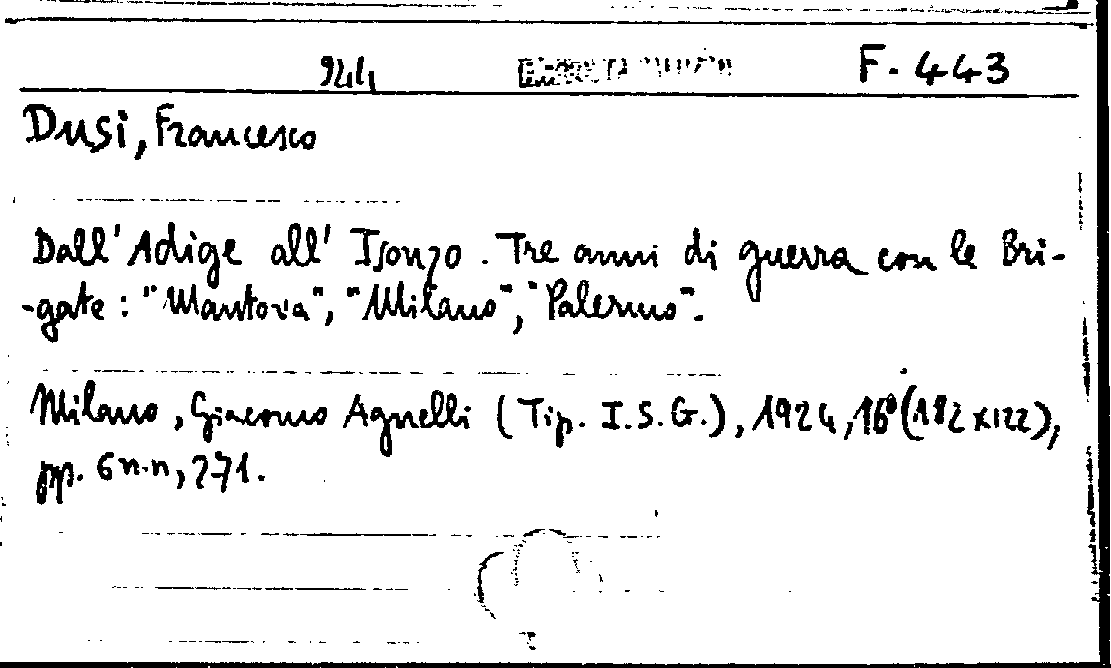 944 F. 443
Dusi, Francesco
Dall'Adige all'Isonzo. Tre anni di guerra con le Bri-
-gate: "Mantova", "Milano", "Palermo".
Milano, Giacomo Agnelli (Tip. I.S.G.), 1924, 16° (182x122),
pp. 6 n.n, 271.